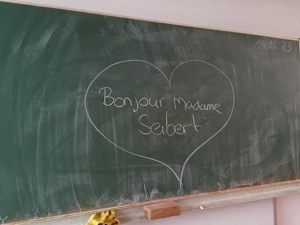 19.06.23
Bonjour Madame
Seibert